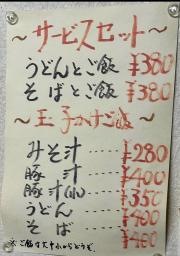 ～サービスセット～
うどんとご飯 ¥380
そばとご飯 ¥380
～玉子かけご飯～
みそ汁 … ¥280
豚汁 … ¥400
豚汁(小) … ¥350
うどん … ¥400
そば … ¥400
※ご飯は大中小からどうぞ。